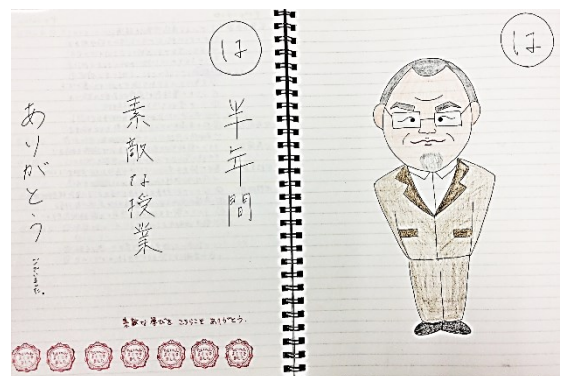 は
半年間
素敵な授業
ありがとう
ございました。
素敵な学びを こちらこそ ありがとう.
は